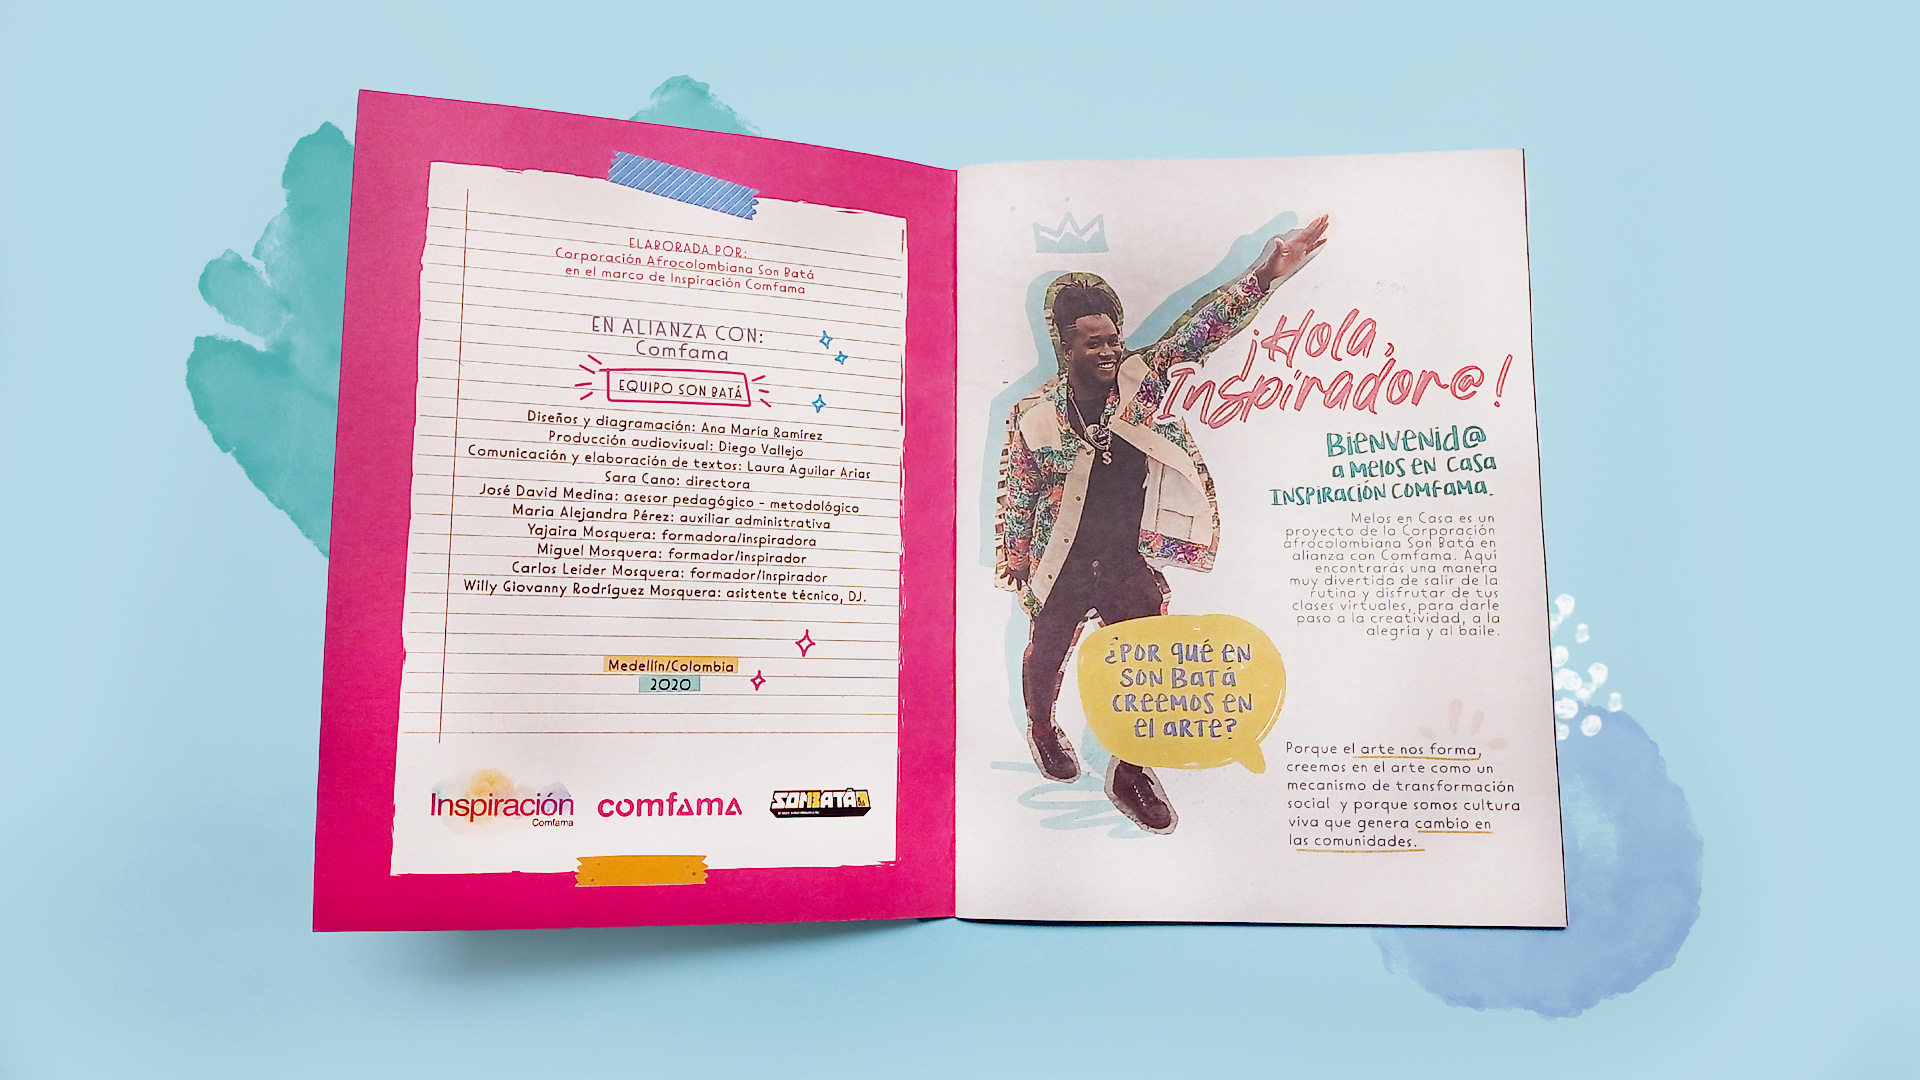 ELABORADA POR:
Corporación Afrocolombiana Son Batá
en el marco de Inspiración Comfama
EN ALIANZA CON:
Comfama
EQUIPO SON BATÁ
Diseños y diagramación: Ana María Ramírez
Producción audiovisual: Diego Vallejo
Comunicación y elaboración de textos: Laura Aguilar Arias
Sara Cano: directora
José David Medina: asesor pedagógico - metodológico
Maria Alejandra Pérez: auxiliar administrativa
Yajaira Mosquera: formadora/inspiradora
Miguel Mosquera: formador/inspirador
Carlos Leider Mosquera: formador/inspirador
Willy Giovanny Rodríguez Mosquera: asistente técnico, DJ.
Medellín/Colombia
2020
Inspiración
Comfama
comfama
SONBATÁ
¡Hola,
Inspirador@!
Bienvenid@
a Melos en casa
Inspiración Comfama.
Melos en Casa es un
proyecto de la Corporación
afrocolombiana Son Batá en
alianza con Comfama. Aquí
encontrarás una manera
muy divertida de salir de la
rutina y disfrutar de tus
clases virtuales, para darle
paso a la creatividad, a la
alegría y al baile.
¿Por qué en
Son Batá
creemos en
el arte?
Porque el arte nos forma,
creemos en el arte como un
mecanismo de transformación
social y porque somos cultura
viva que genera cambio en
las comunidades.